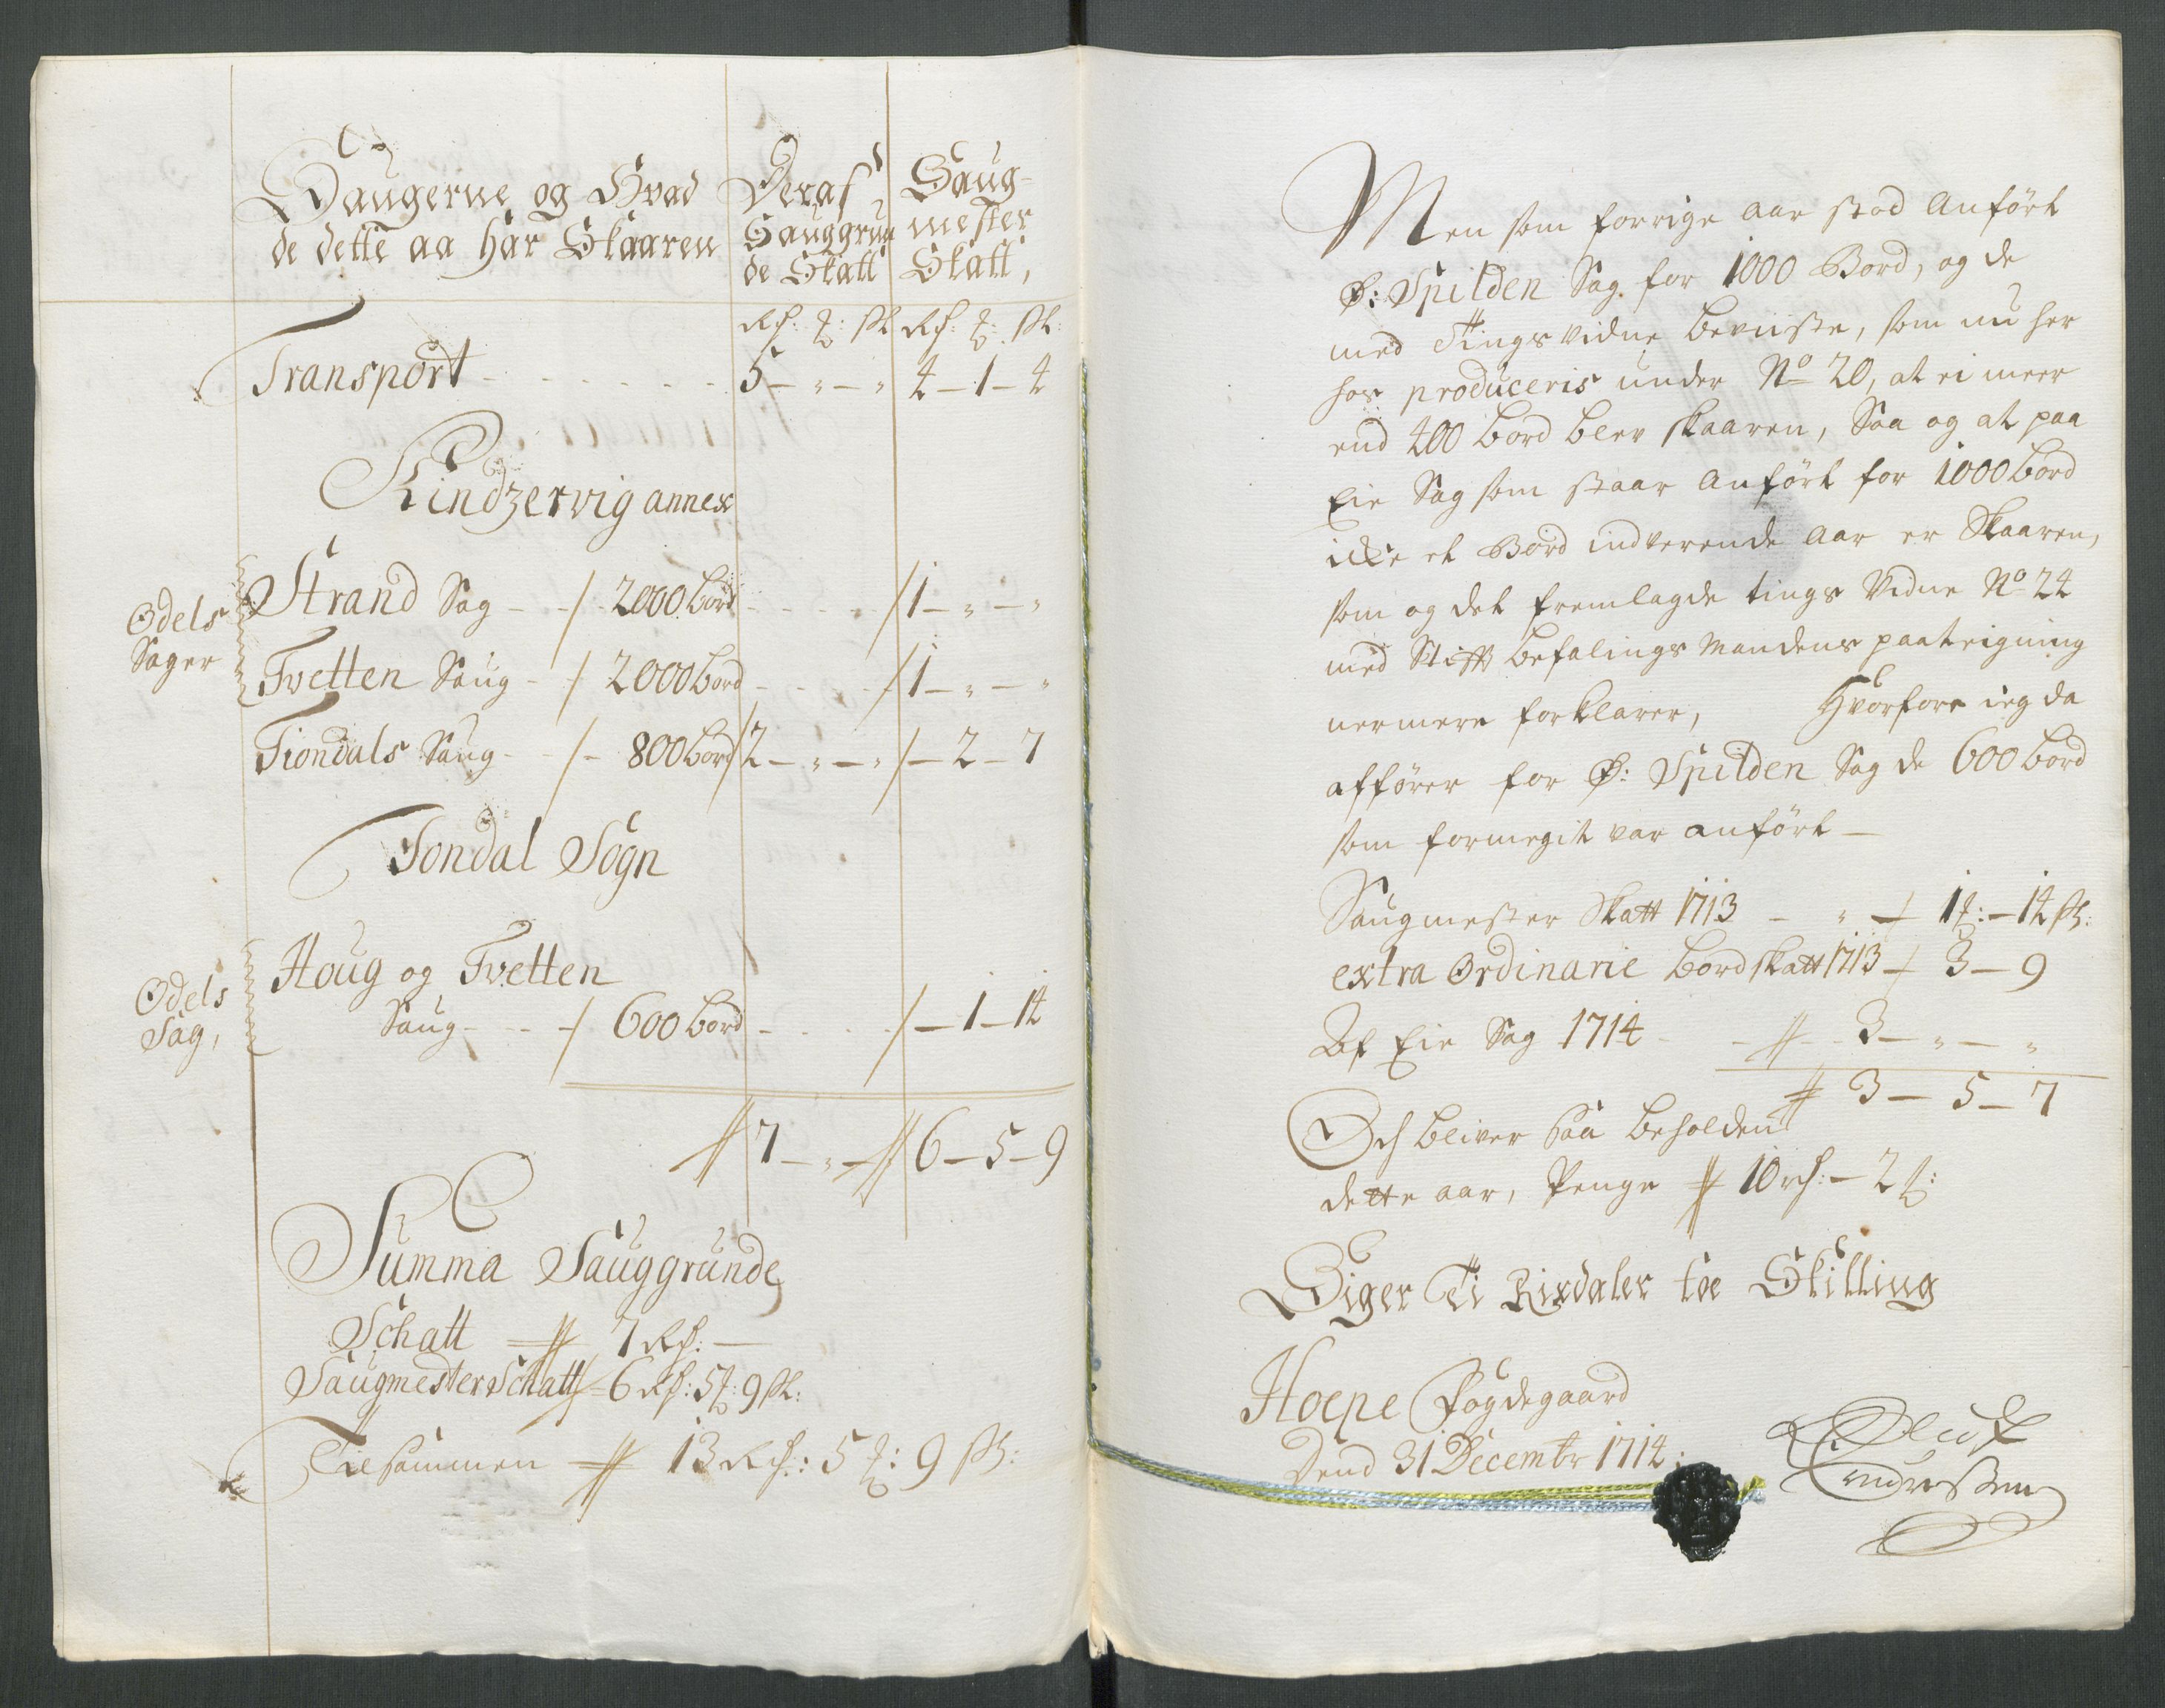 Saugerne og Hvad
de dette aa har Skaaren
Deraf
Sauggrun
de Skatt
Saug-
mester
Skatt,
Rd: ƶ: sk Rd: ƶ: sk:
Transport - - - - - - - 5 - " - " 4 - 1 - 4
Kindzervig annex
Odels
Sager
Strand Sag - - / 2000 bord - - - - / 1 - " - "
Tvetten Saug - - / 2000 bord - - - - / 1 - " - "
Tiondals Saug - - / - 800 bord / 2 - " - " / - 2 - 7
Jondal Sogn
Odels
Sag,
Houg og Tvetten
Saug - - - / 600 bord - - - - / - 1 - 14
7 - " - 6 - 5 - 9
Summa Sauggrunde
Schatt 7 Rd: -
Saugmester Schatt 6 Rd: 5 ƶ: 9 sk:
Tilsammen 13 Rd: 5 ƶ: 9 sk:
Men som forrige aar stod anført
Ø: Spilden Sag for 1000 Bord, og de
med Tings vidne beviiste, som nu her
hos produceris under No 20, at ei meer
end 400 bord blev skaaren, Saa og at paa
Eie Sag som staar anført for 1000 bord
icke et Bord indverende aar er Skaaren,
som og det fremlagde tings vidne No 24
med Stift befalings mandens paateigning
nermere forklarer, Hvorfore ieg da
affører for Ø: Spilden Sag de 600 bord
som formegit var anført -
Saugmester Skatt 1713 - " - 1 ƶ: - 14 sk:
extra Ordinarie bordskatt 1713 - 3 - 9
Af Eie Sag 1714 - - 3 - " - "
3 - 5 - 7
Och bliver saa beholden
dette aar, Penge 10 rd: - 2 ƶ:
Siger Ti Rixdaler toe Skilling
Hoepe Fogdegaard
Dend 31 Decembr 1714:
Oluf
Endressen